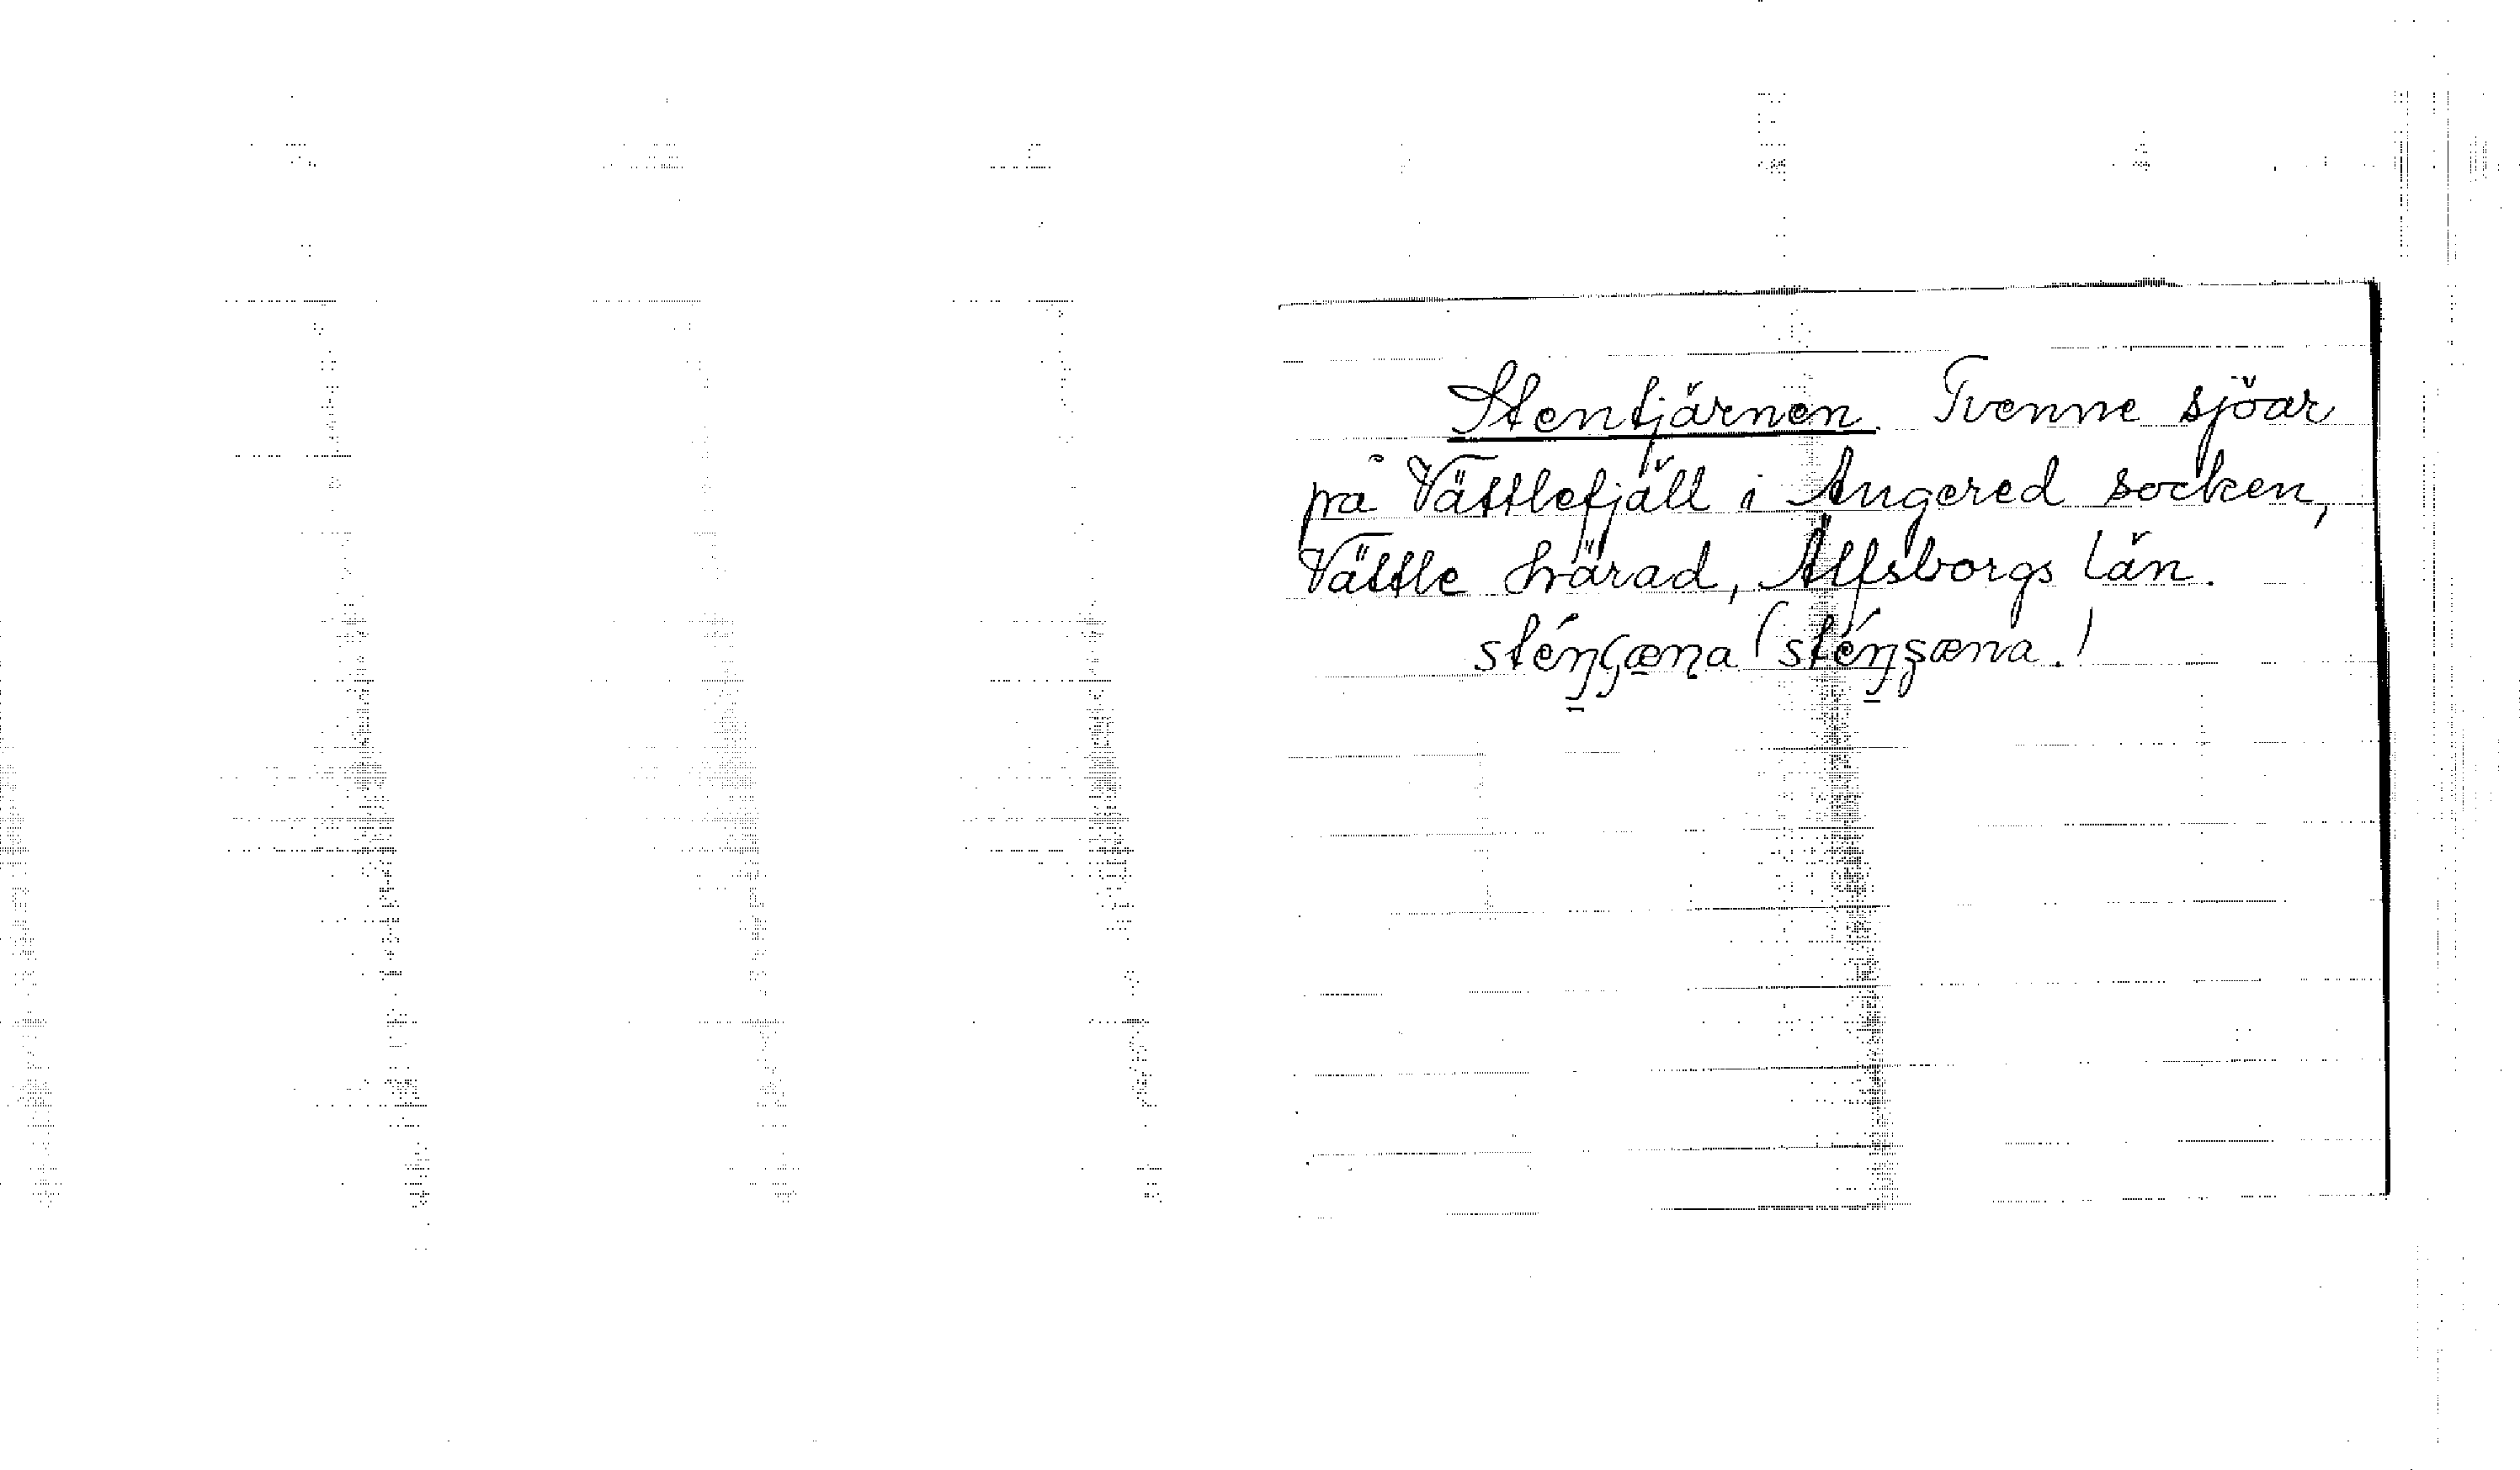 Stentjärnen. Tvenne sjöar
på Vättlefjäll i Angered socken,
Vättle härad, Älfsborgs län.